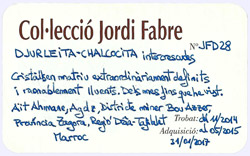 Col·lecció Jordi Fabre
DJURLEITA-CHALCOCITA interessades
Nº JFD28
Cristalls en matriu extraordinàriament definits
i raonablement lluents. Dels mes fins que he vist.
Aït Ahmane, Agdz, Districte miner Bou Azzer,
Província Zagora, Regió Drâa-Tafilalet
Marroc
Trobat: 11/2014
Adquisició: 05/2015
31/01/2017